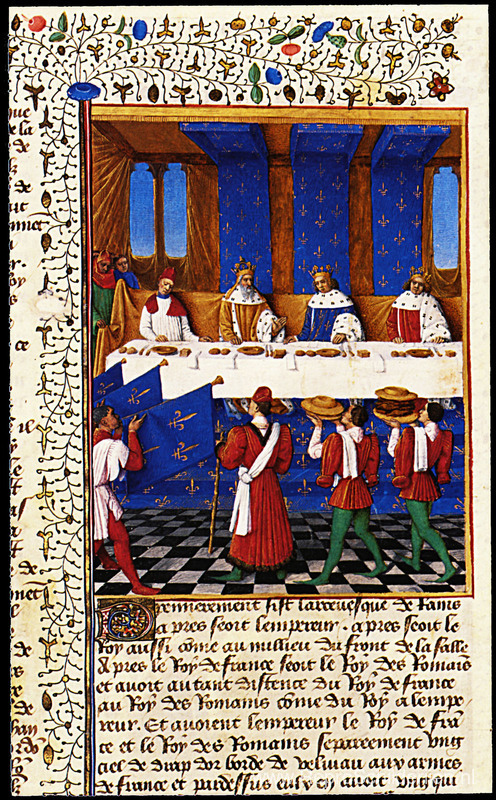 que
de la
de
de
et
ce
il
de
de
de
Premierement sist larcevesque de Rains
apres seoit lempereur . apres seoit le
roy aussi come au millieu du front de la salle
Apres le Roy de france seoit le Roy des Romais
et avoit autant distence du Roy de france
au Roy des Romains come du Roy a lempe
reur. Et avoient lempereur le Roy de fra
ce et le Roy des Romains separeement ung
ciel de drap dor borde de veluiau aux armes
de france et pardessus eulx en avoit ung qui